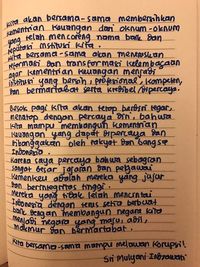 Kita akan bersama-sama membersihkan
Kementrian Keuangan dari oknum-oknum
yang telah mencoreng nama baik dan
reputasi institusi kita.
Kita bersama-sama akan meneruskan
reformasi dan transformasi kelembagaan
agar Kementrian Keuangan menjadi
institusi yang bersih, profesional, kompeten,
dan bermartabat serta kredibel/dipercaya.
Besok pagi kita akan tetap berdiri tegar,
menatap dengan percaya diri, bahwa
kita mampu membangun Kementrian
Keuangan yang dapat dipercaya dan
dibanggakan oleh rakyat dan bangsa
Indonesia
Karena saya percaya bahwa sebagian
sangat besar jajaran dan pegawai
Kemenkeu adalah mereka yang jujur
dan berintegritas tinggi.
Mereka yang tidak lelah mencintai
Indonesia dengan terus setia berbuat
baik dengan membangun negara kita
menjadi negara yang maju, adil,
makmur dan bermartabat.
Kita bersama-sama mampu melawan korupsi!
Sri Mulyani Indrawati